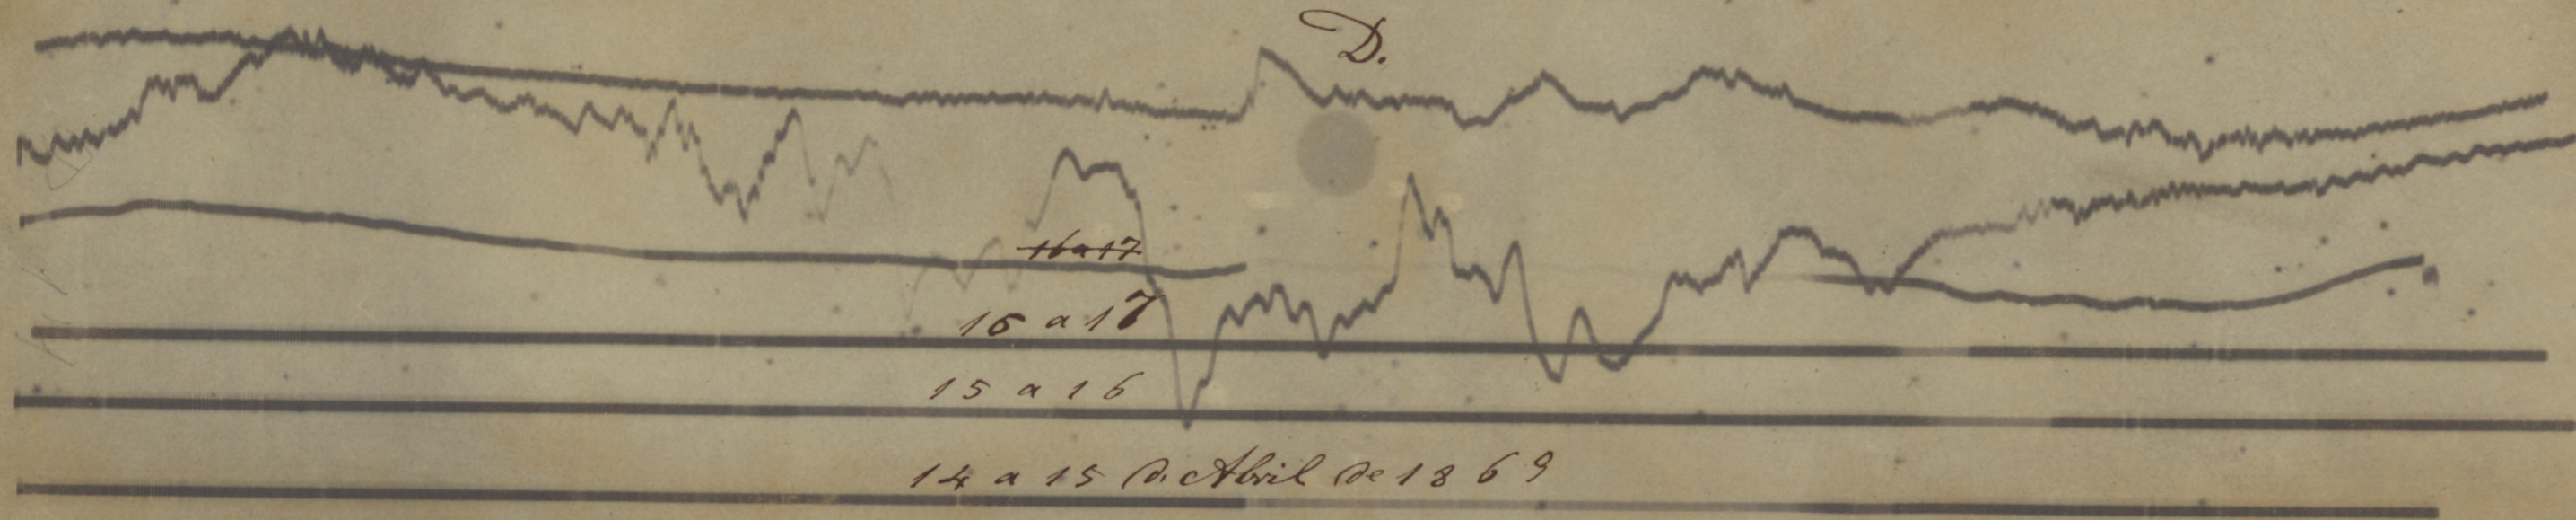 D.
16 a 17
16 a 17
15 a 16
14 a 15 d. Abril de 1869